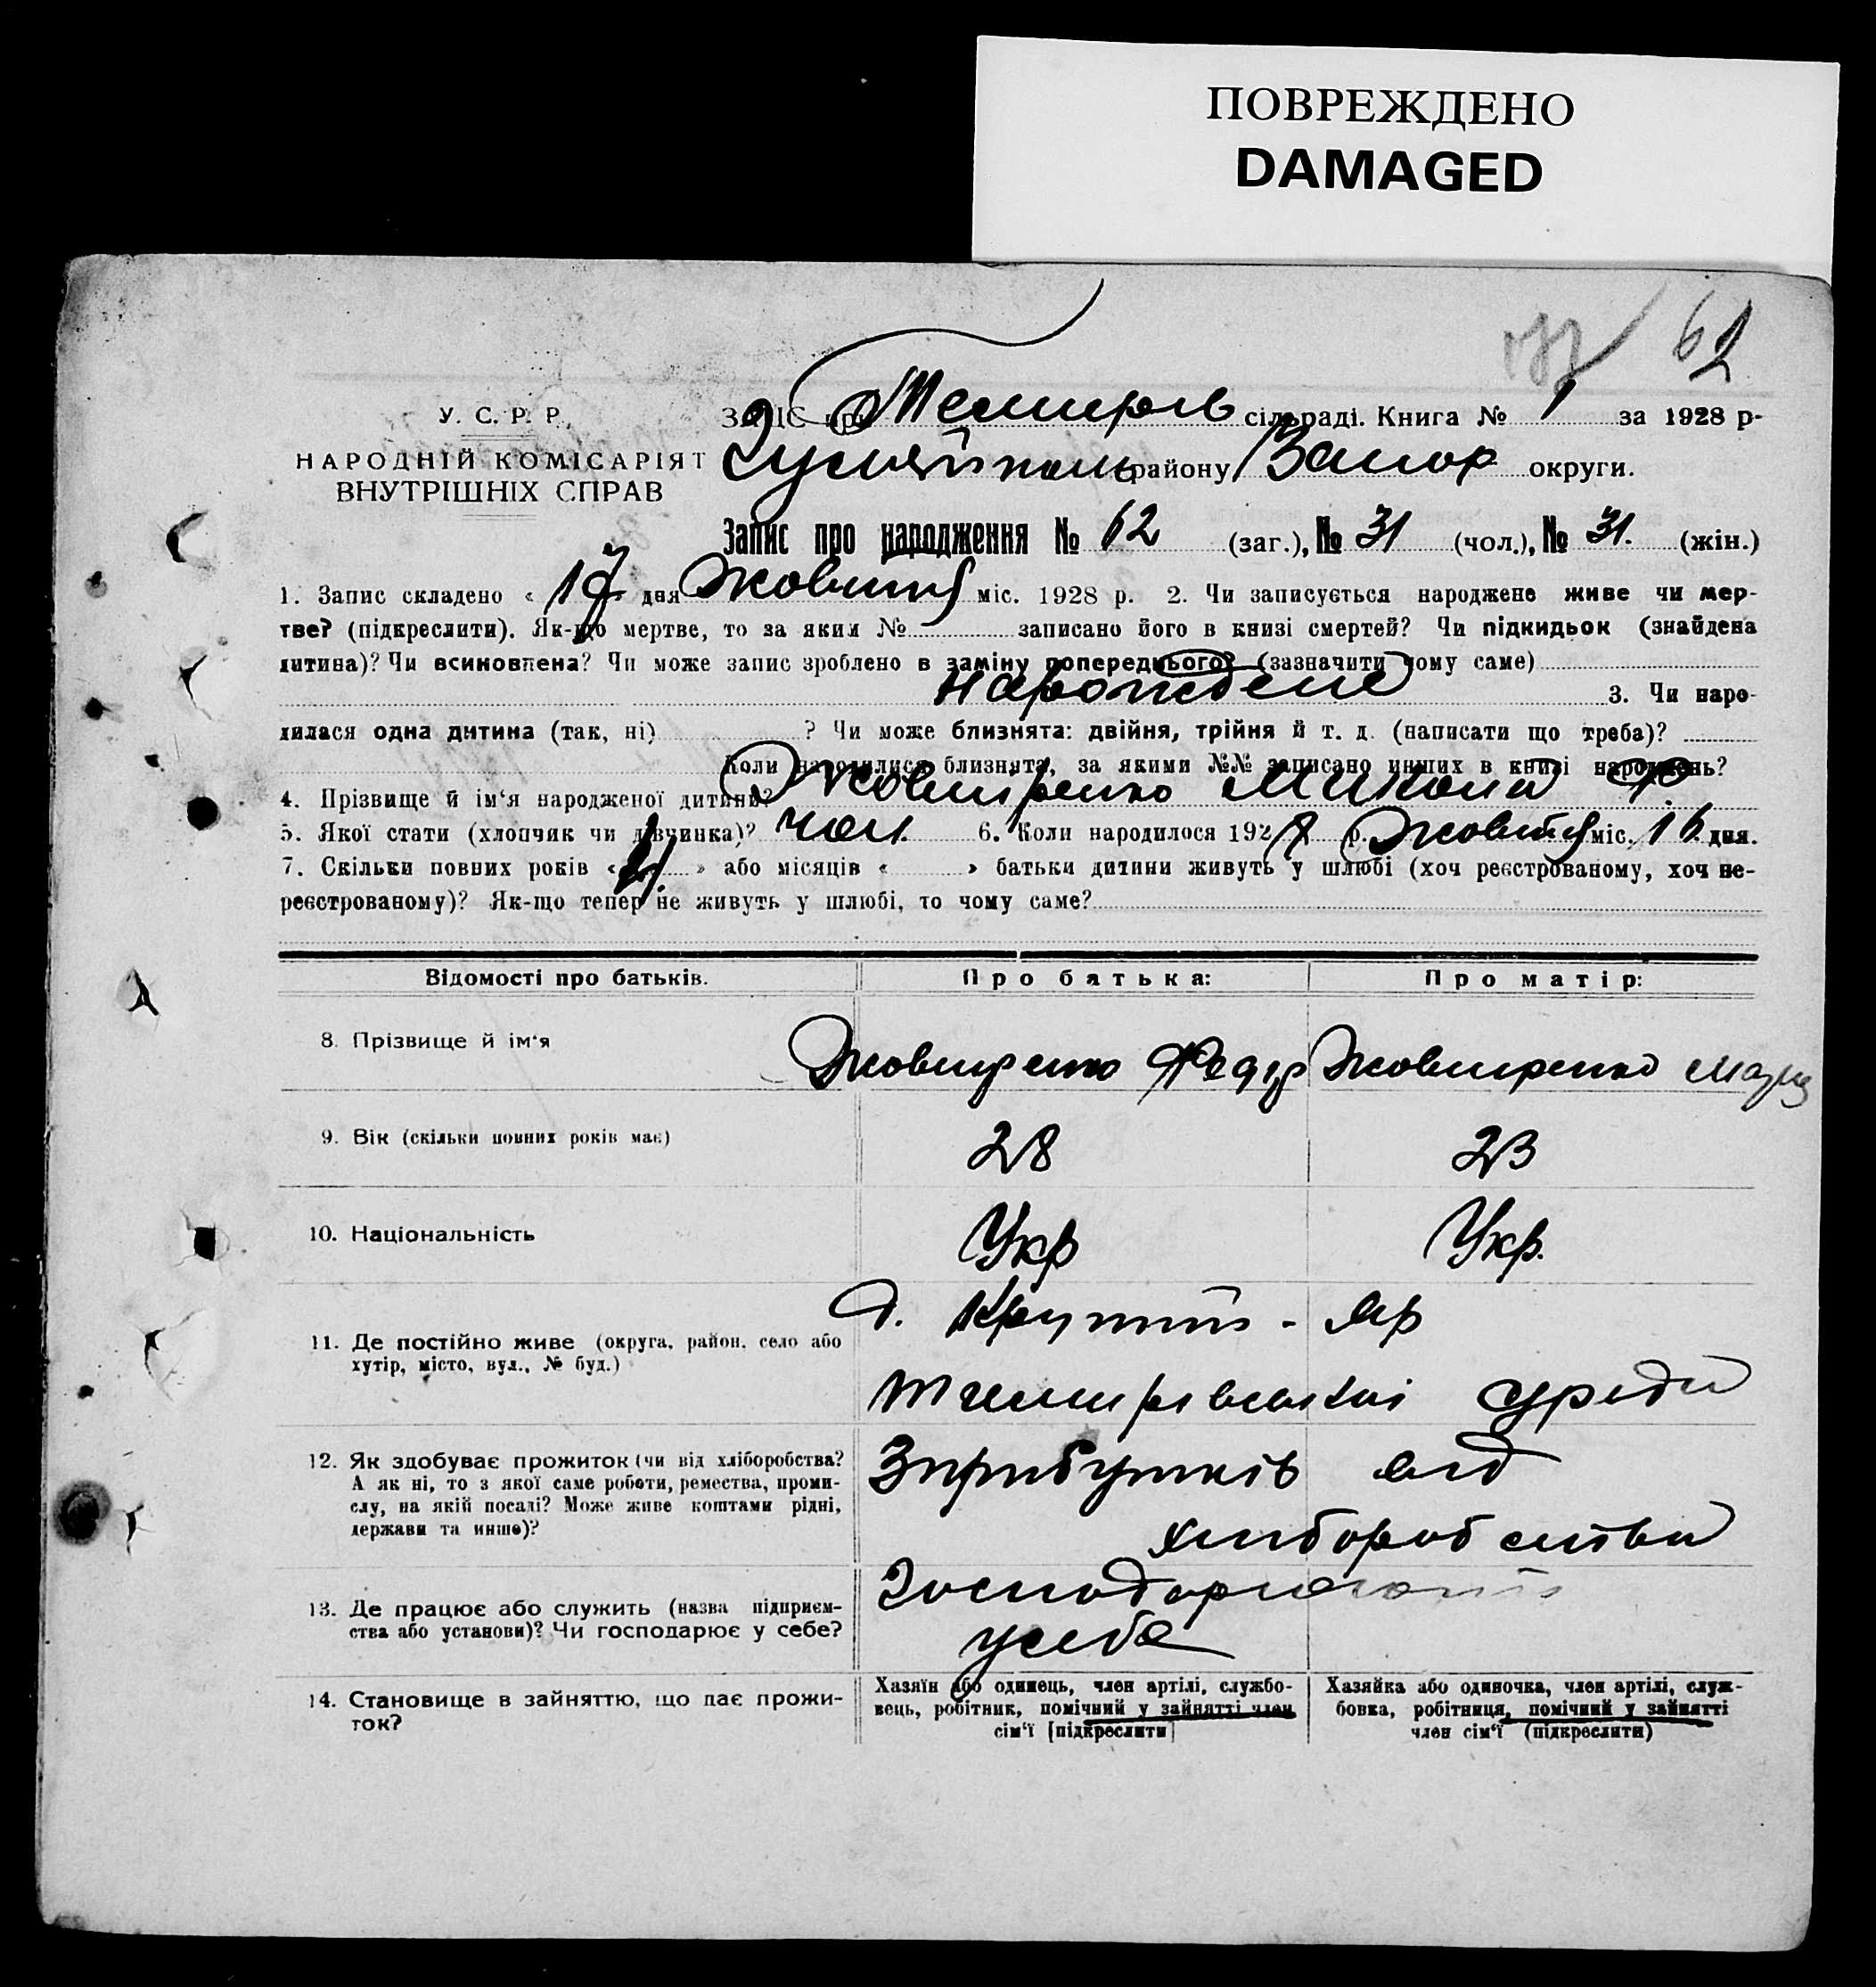 ПОВРЕЖДЕНО
DAMAGED
62
У. С. Р. Р.
НАРОДНІЙ КОМІСАРІЯТ
ВНУТРІШНІХ СПРАВ
ЗАПИС при Темирів сільраді. Книга № 1 за 1928 р-
Гуляйполь району Запор округи.
Запис про народження № 62 (заг.), № 31 (чол.), № 31. (жін.)
1. Запис складено « 17 дня Жовтня міс. 1928 р. 2. Чи записується народжене живе чи мер-
тве? (підкреслити). Як-що мертве, то за яким № записано його в книзі смертей? Чи підкидьок (знайдена
дитина)? Чи всиновлена? Чи може запис зроблено в заміну попереднього? (зазначити чому саме)
нарождене 3. Чи наро-
дилася одна дитина (так, ні) ? Чи може близнята: двійня, трійня й т. д. (написати що треба)?
Коли народилися близнята, за якими №№ записано инших в книзі народжень?
4. Прізвище й ім'я народженої дитини? Жовтиренко Микола Ф.
5. Якої стати (хлопчик чи дівчинка)? чол. 6. Коли народилося 1928 р. Жовтня міс. 16 дня.
7. Скільки повних років « » або місяців « » батьки дитини живуть у шлюбі (хоч реєстрованому, хоч не-
реєстрованому)? Як-що тепер не живуть у шлюбі, то чому саме?
Відомості про батьків. Про батька: Про матір:
8. Прізвище й ім'я Федір
9. Вік (скільки повних років має) 28 23
10. Національність Укр Укр.
д. Крутий - Яр
11. Де постійно живе (округа, район, село або
хутір, місто, вул., № буд.)
Темирівської с/ради
12. Як здобуває прожиток (чи від хліборобства? Зприбутків від
А як ні, то з якої саме роботи, ремества, проми-
слу, на якій посаді? Може живе коштами рідні,
держави та инше)?
хліборобства
13. Де працює або служить (назва підприєм-
ства або установи)? Чи господарює у себе?
усебе
14. Становище в зайняттю, що дає прожи-
ток?
Хазяїн або одинець, член артілі, службо-
вець, робітник, помічний у зайнятті член
сім'ї [підкреслити]
Хазяйка або одиночка, член артілі, служ-
бовка, робітниця, помічний у зайнятті
член сім'ї (підкреслити)